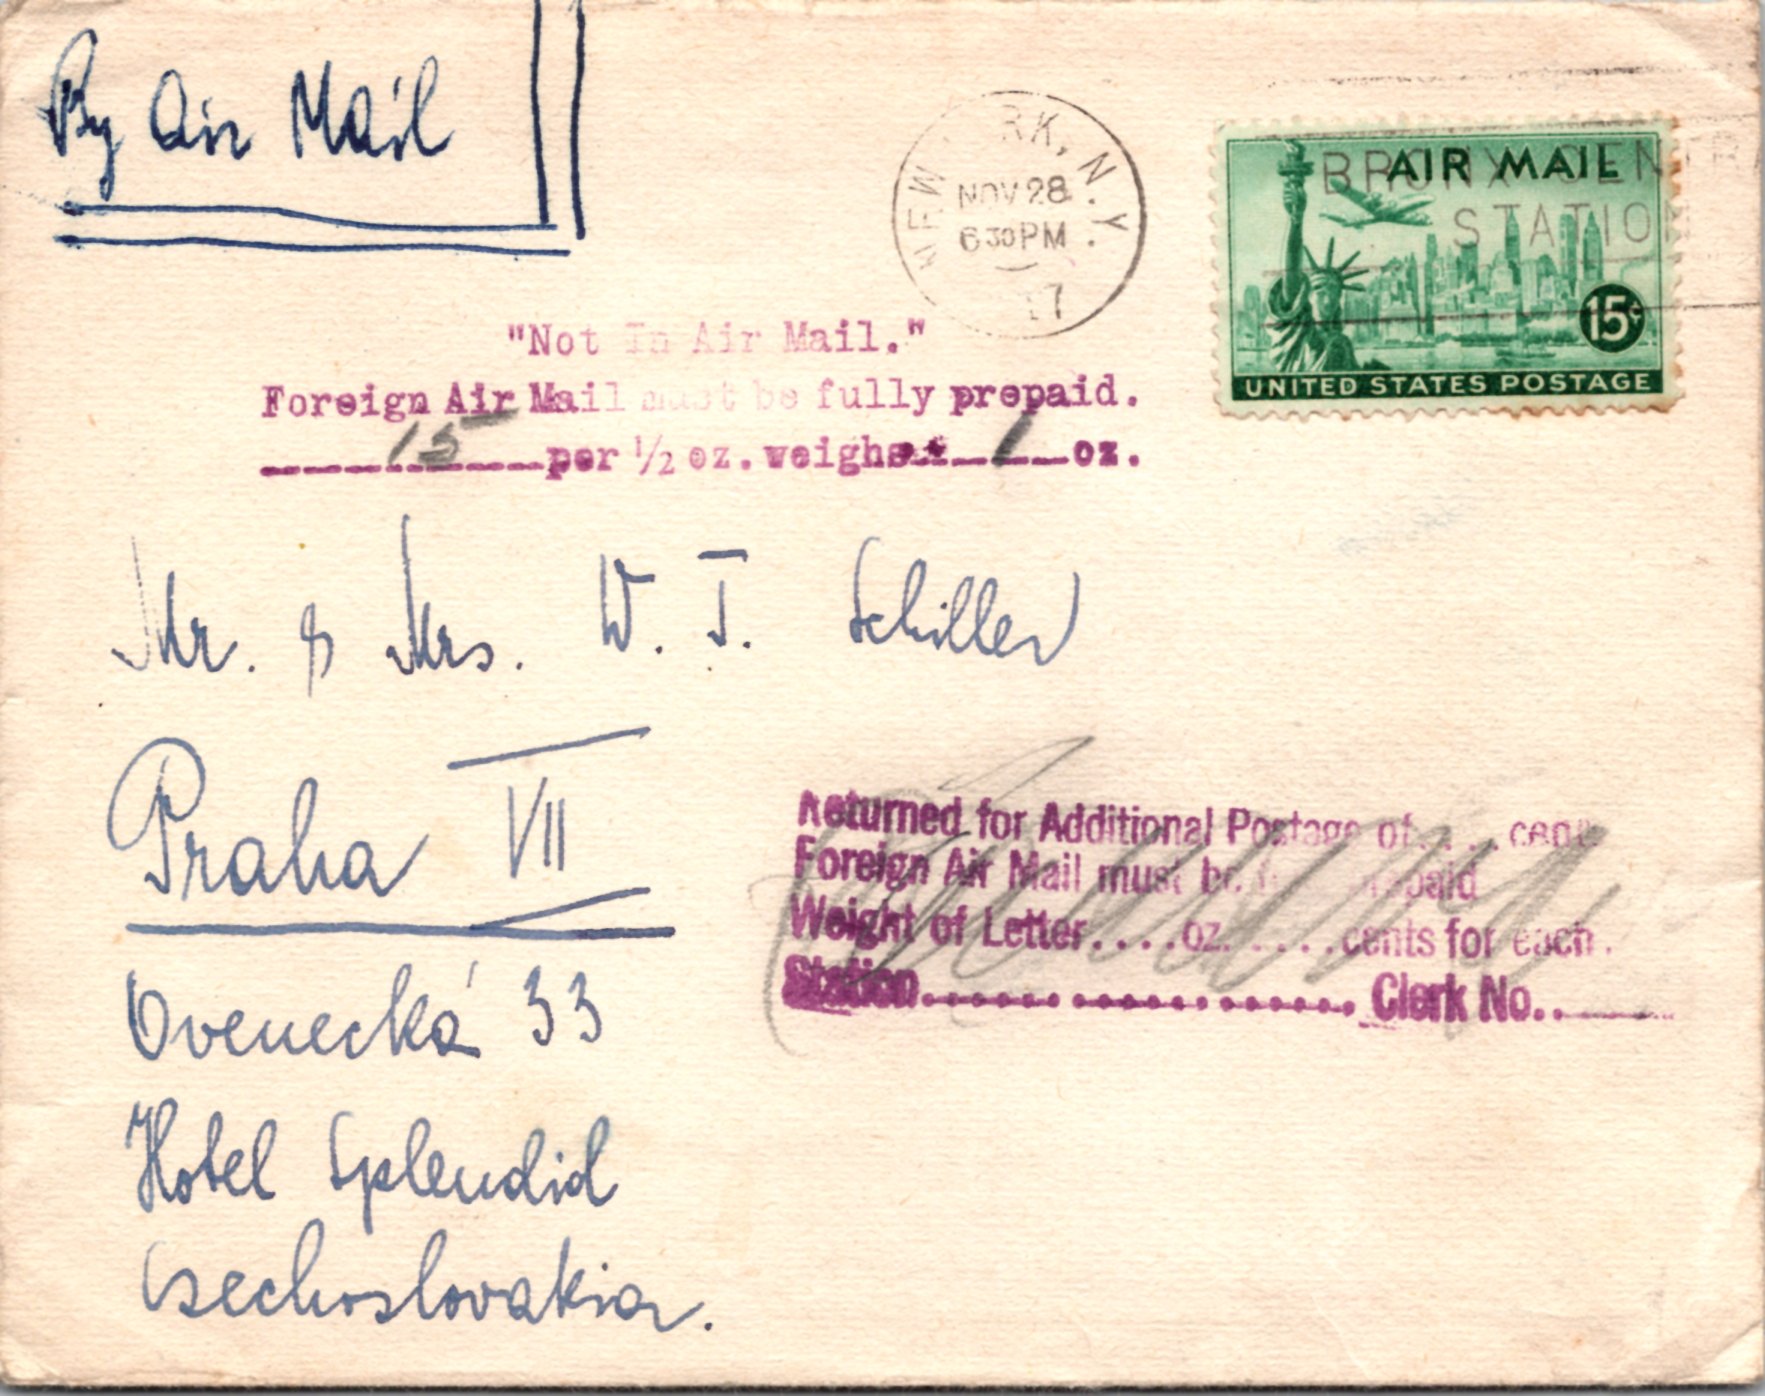 By Air Mail
NEW YORK, N.Y.
NOV 28
6 30 PM
BRONX CENTRAL
STATION
AIR MAIL
15¢
UNITED STATES POSTAGE
"Not In Air Mail."
Foreign Air Mail must be fully prepaid.
15 per 1/2 oz. weighs 1 oz.
Mr. & Mrs. W. J. Schiller
Praha VII
Returned for Additional Postage of....cents
Foreign Air Mail must be prepaid
Weight of Letter....oz.....cents for each.
Station.................... Clerk No..
Ovenecká 33
Hotel Splendid
Czechoslovakia.